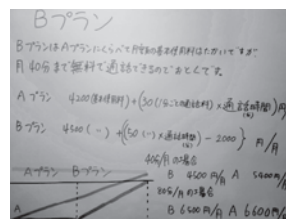 Bプラン
BプランはAプランにくらべて月額の基本使用料はたかいですが
月40分まで無料で通話できるのでおとくです。
Aプラン 4200(基本使用料)+(30(1分ごとの通話料)×通話時間)円
Bプラン 4500(〃)+{(50(〃)×通話時間)-2000} 円/月
40分/月の場合
Aプラン Bプラン B 4500円/月 A 5400円/月
80分/月の場合
A B 6500円/月 A 6600円/月